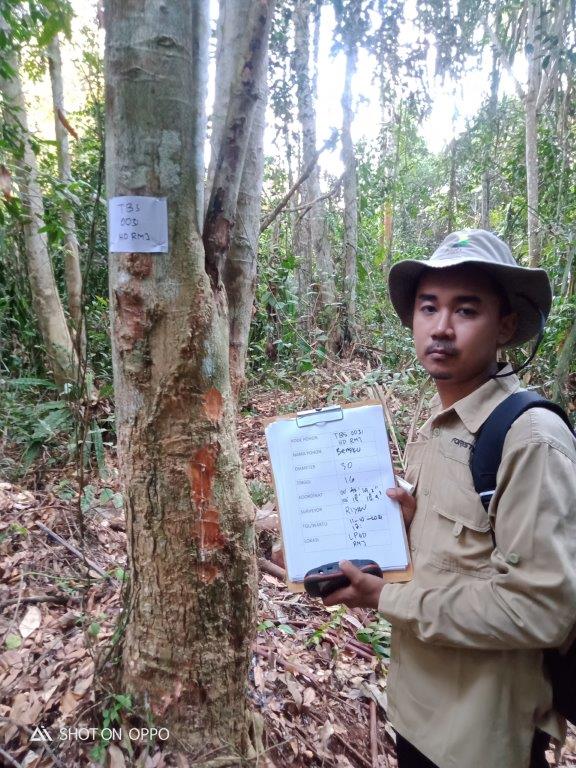 TBS
0031
HD RMJ
KODE POHON TBS 0031
HD RMJ
NAMA POHON BENGKU
DIAMETER 50
TINGGI 16
KOORDINAT
SURVEYOR RIYAN
TGL/WAKTU
LOKASI LPHD
RMJ
SHOT ON OPPO